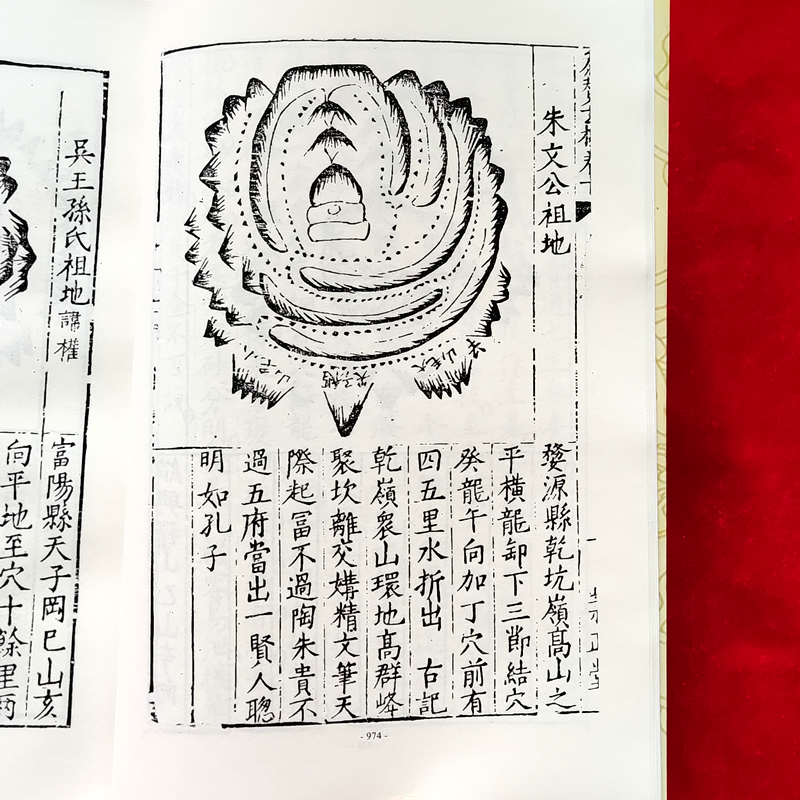 朱文公祖地
婺源縣乾坑嶺高山之
平橫龍卸下三節結穴
癸龍午向加丁穴前有
四五里水折出 古記
乾嶺衆山環地高群峰
聚坎離交媾精文筆天
際起富不過陶朱貴不
過五府當出一賢人聰
明如孔子
吳王孫氏祖地 諱權
富陽縣天子岡巳山亥
向平地至穴十餘里兩
- 974 -